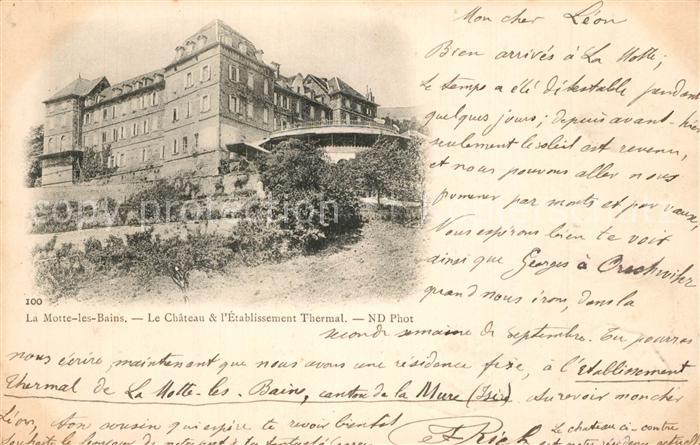 Mon cher Léon
Bien arrivés à La Motte;
le temps a été détestable pendant
quelques jours; depuis avant-hier
seulement le soleil est revenu,
et nous pouvons aller nous
promener par monts et par vaux,
Nous espérons bien te voir
ainsi que Georges à
quand nous irons, dans la
100
La Motte-les-Bains. — Le Château & l'Établissement Thermal. — ND Phot
seconde semaine de Septembre. Tu pourras
nous écrire, maintenant que nous avons une résidence fixe, à l'Etablissement
Thermal de La Motte-les-Bains, canton de la Mure (Isère). Au revoir mon cher
Léon, ton cousin qui espère te revoir bientôt
Le château ci-contre
est notre résidence
copy scout
copy scout